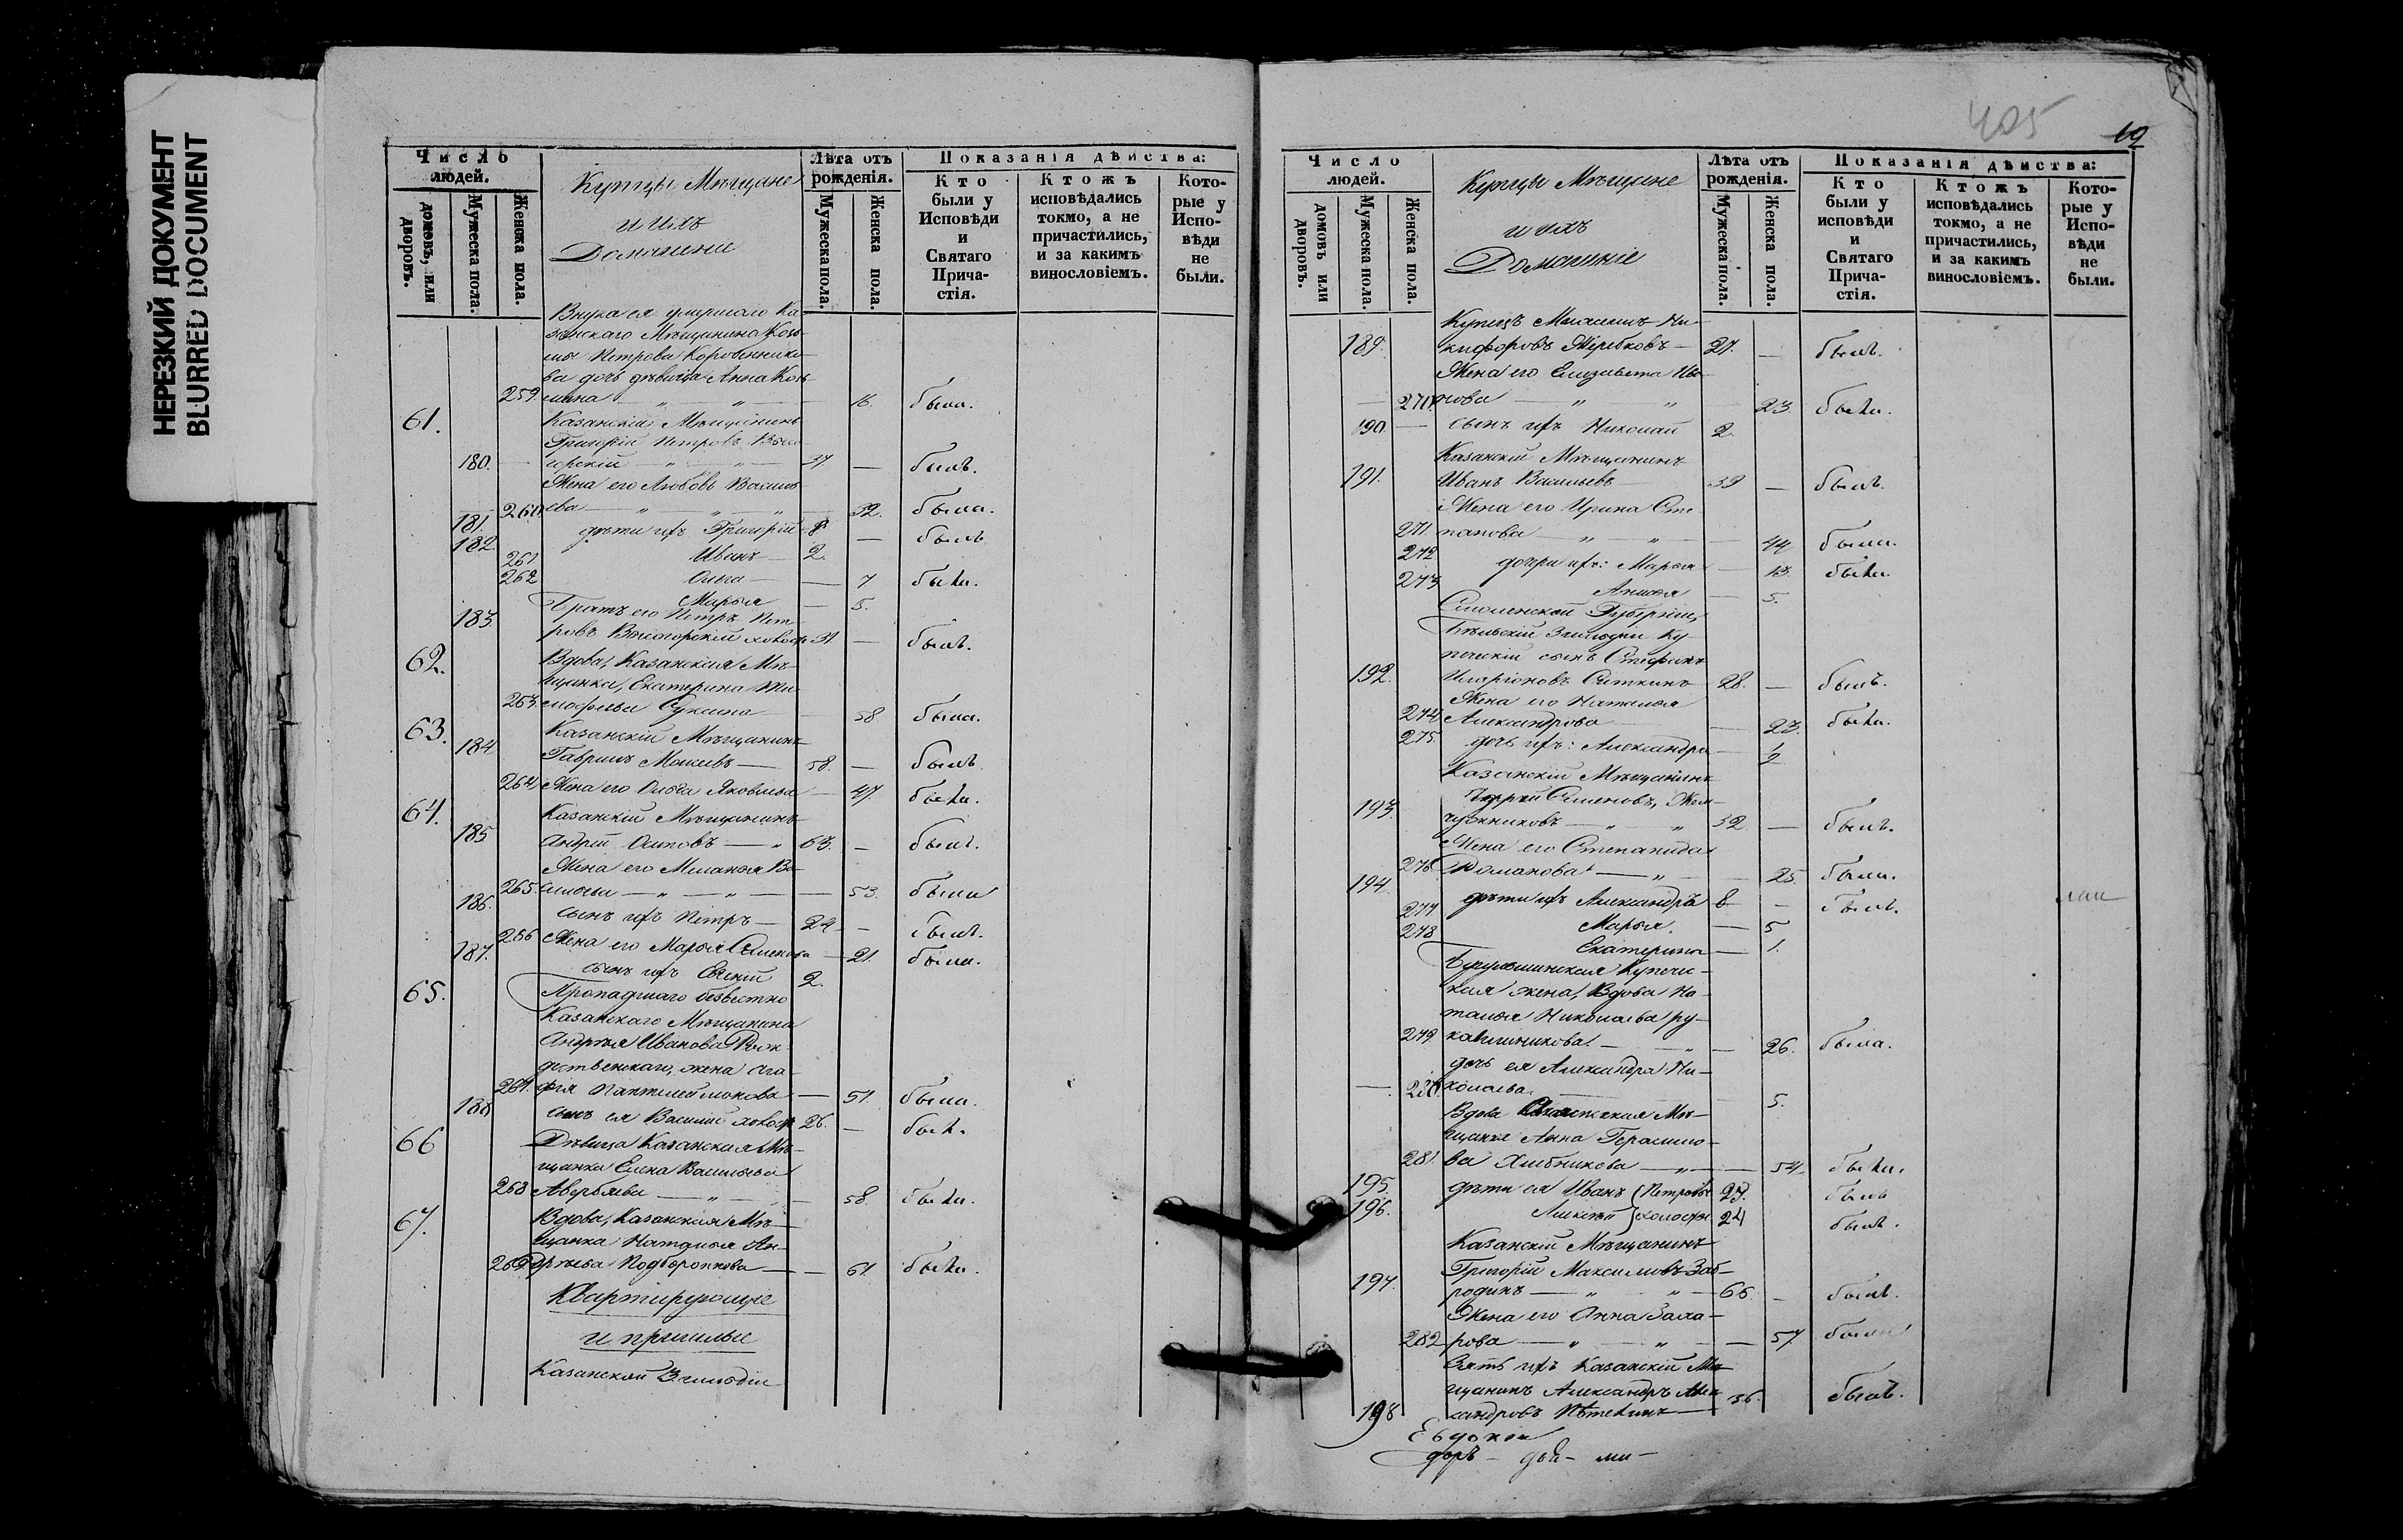 НЕРЕЗКИЙ ДОКУМЕНТ
BLURRED DOCUMENT
Число людей.
домовъ, или дворовъ.
Мужеска пола.
Женска пола.
Купцы Мѣщане
и ихъ
Домашніе
Лѣта отъ рожденія.
Мужеска пола.
Женска пола.
Показанія дѣйства:
Кто были у Исповѣди и Святаго Прича-стія.
Ктожъ исповѣдались токмо, а не причастились, и за какимъ винословіемъ.
Кото-рые у Испо-вѣди не были.
Внука ея умершаго Ка-
занскаго Мѣщанина Козь-
мы Петрова Коровенники-
ва дочь дѣвица Анна Козь-
259. мина — „ — „ — 16. была.
61. Казанскій Мѣщанинъ
Григорій Петровъ
180. — горскій — „ — „ — 37. — былъ.
Жена его Любовь Василь
260. ева — „ — „ — „ — 32. была.
181. дѣти ихъ Григорій 8 — былъ
182. Иванъ — 2.
261 Ольга — 7 была.
262 Марья — 5.
Братъ его Петръ Пет-
183. ровъ холост 31 — былъ.
62. Вдова, Казанская Мѣ-
щанка, Екатерина Ти-
263. мофѣева Сукина — 58 была.
63. Казанскій Мѣщанинъ
184 Гаврилъ Моисѣевъ — 58. — былъ.
264 Жена его Ольга Яковлева — 47. была.
64. Казанскій Мѣщанинъ
185 Андрей Осиповъ — „ 63. — былъ.
Жена его Меланья Ва-
265. сильева — „ — „ — 53. была
186. сынъ ихъ Петръ — 24 — былъ.
266 Жена его Марья Семенова — 21. была.
187. сынъ ихъ 2.
65. Пропадшаго безвестно
Казанскаго Мѣщанина
Андрея Иванова Рож-
дественскаго, жена Ага-
267. фія Пантилеймонова — 51. была.
188 сынъ ея Василій холост 26. — былъ.
66 Дѣвица Казанская Мѣ-
щанка Елена Васильева
268 Авербяева — „ — 58. была.
67. Вдова, Казанская Мѣ-
щанка Наталья Ан-
269 дреева Подворопкова — 61. была.
Квартирующіе
и пришлые
Казанской 3. гильдіи
405
19
Число людей.
домовъ или дворовъ.
Мужеска пола.
Женска пола.
Купцы Мѣщане
и ихъ
Домашніе
Лѣта отъ рожденія.
Мужеска пола.
Женска пола.
Показанія дѣйства:
Кто были у исповѣди и Святаго Прича-стія.
Ктожъ исповѣдались токмо, а не причастились, и за какимъ винословіемъ.
Кото-рые у Испо-вѣди не были.
Купецъ Ни-
189. кифоровъ Жеребковъ — 27. — былъ.
Жена его Елизавета Ива-
— 270. нова — „ „ 23. была.
190. — сынъ ихъ Николай 2.
Казанскій Мѣщанинъ
191. Иванъ Васильевъ 39 — былъ.
Жена его Ирина Сте-
271. панова — „ — „ — 44 была.
272 дочери ихъ: Марья — 13. была.
273 Анисья — 5.
Смоленской Губерніи,
Бѣльскій 3 гильдіи Ку-
печескій сынъ Стефанъ
192. Иларіоновъ Ситкинъ 28. — былъ.
Жена его Наталья
274 Александрова — 23. была.
275. дочь ихъ: Александра — 1/2
Казанскій Мѣщанинъ
Семеновъ, Жем-
193. чужниковъ — „ „ 32 — былъ.
Жена его Степанида
276. Романова — „ — 25. была.
194. дѣти ихъ Александръ 8 — былъ.
277 Марья. — 5
278 Екатерина — 1.
Бугульминская Купечес-
кая жена, Вдова На-
талья Николаева Ру-
279. кавишникова. — „ — 26. была.
дочь ея Александра Ни-
— 280 колаева. 5.
Вдова Казанская Мѣ-
щанка Анна Герасимо-
281. ва Хлебникова — „ — 54. была.
195. дѣти ея Иванъ } Петровы 27. былъ
196. Алексѣй } холосты 24 былъ.
Казанскій Мѣщанинъ
Григорій Максимовъ Заб-
197. родинъ — „ „ — 66. — былъ.
Жена его Анна Заха-
282 рова — „ — „ — 57. была
Зять ихъ Казанскій Мѣ-
щанинъ Александръ Алек-
198 сандровъ 36. былъ.